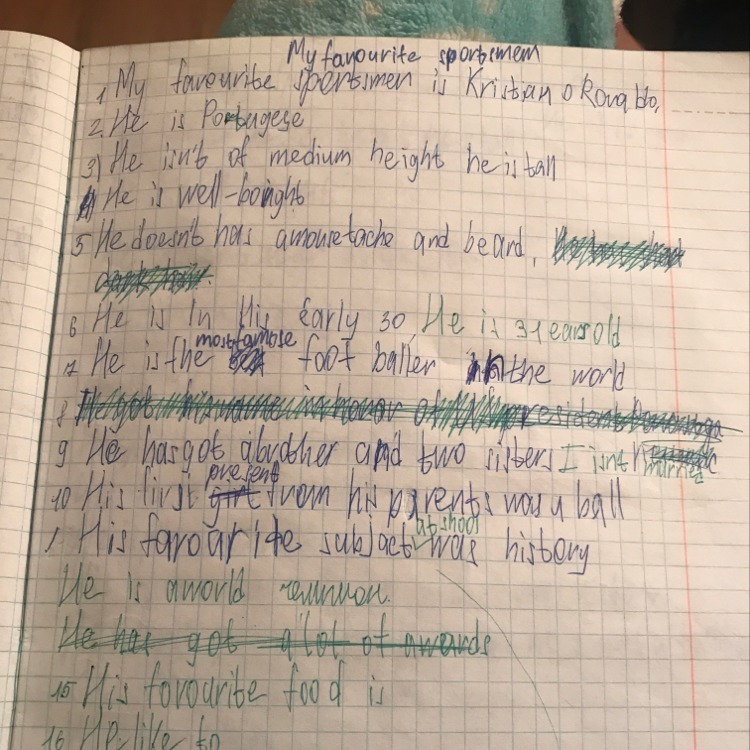 My favourite sportsmen
1 My favourite sportsmen is Kristiano Ronaldo,
2. He is Portugese
3) He isn't of medium height he is tall
4) He is well-boight
5 He doesn't has a mousetache and beard.
6 He is in His Early 30, He is 31 ears old
7 He is the most famose foot baller in the world
8 He got his name in honor of president
9 He has got a brother and two sisters I isnt married
10 His first present from his parents was a ball
1. His favourite subject at shool was history
He is a world
He has got a lot of awards
15 His favourite food is
16 He like to